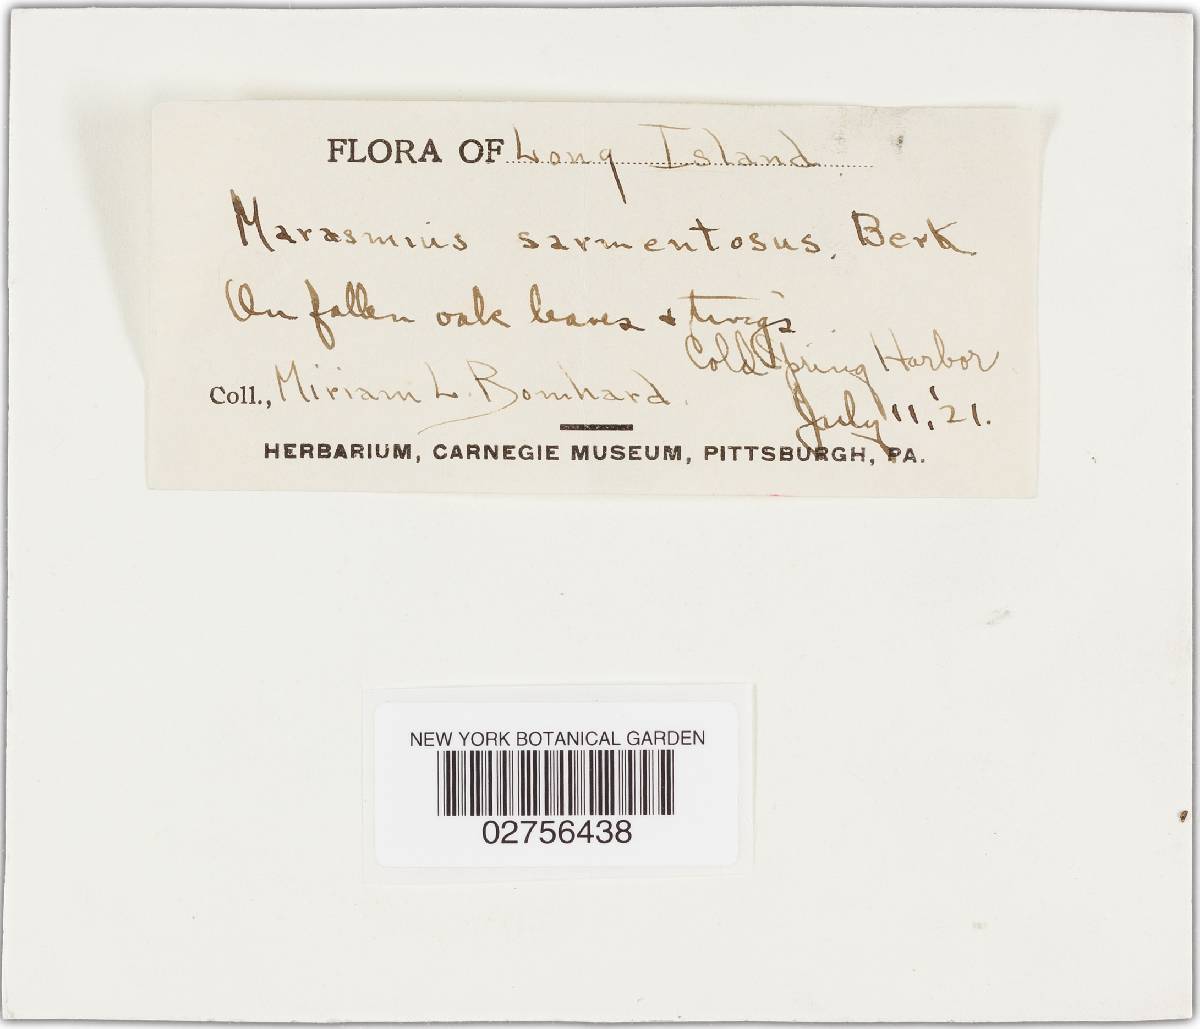 FLORA OF Long Island
Marasmius sarmentosus. Berk
On fallen oak leaves & twigs
Cold Spring Harbor
Coll., Miriam L. Bomhard.
July 11, '21.
HERBARIUM, CARNEGIE MUSEUM, PITTSBURGH, PA.
NEW YORK BOTANICAL GARDEN
02756438